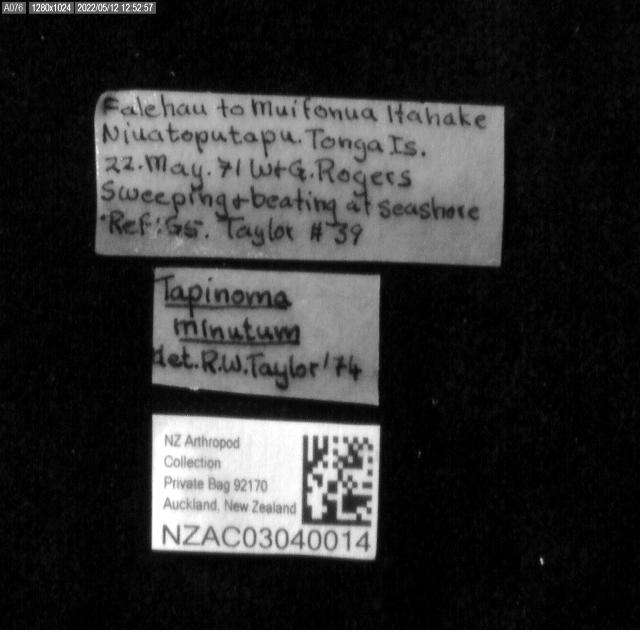 A076 1280x1024 2022/05/12 12:52:57
Falehau to Muifonua Hahake
Niuatoputapu. Tonga Is.
22. May. 71 W+G. Rogers
Sweeping + beating at seashore
Ref: G5. Taylor # 39
Tapinoma
minutum
det. R.W. Taylor '74
NZ Arthropod
Collection
Private Bag 92170
Auckland, New Zealand
NZAC03040014